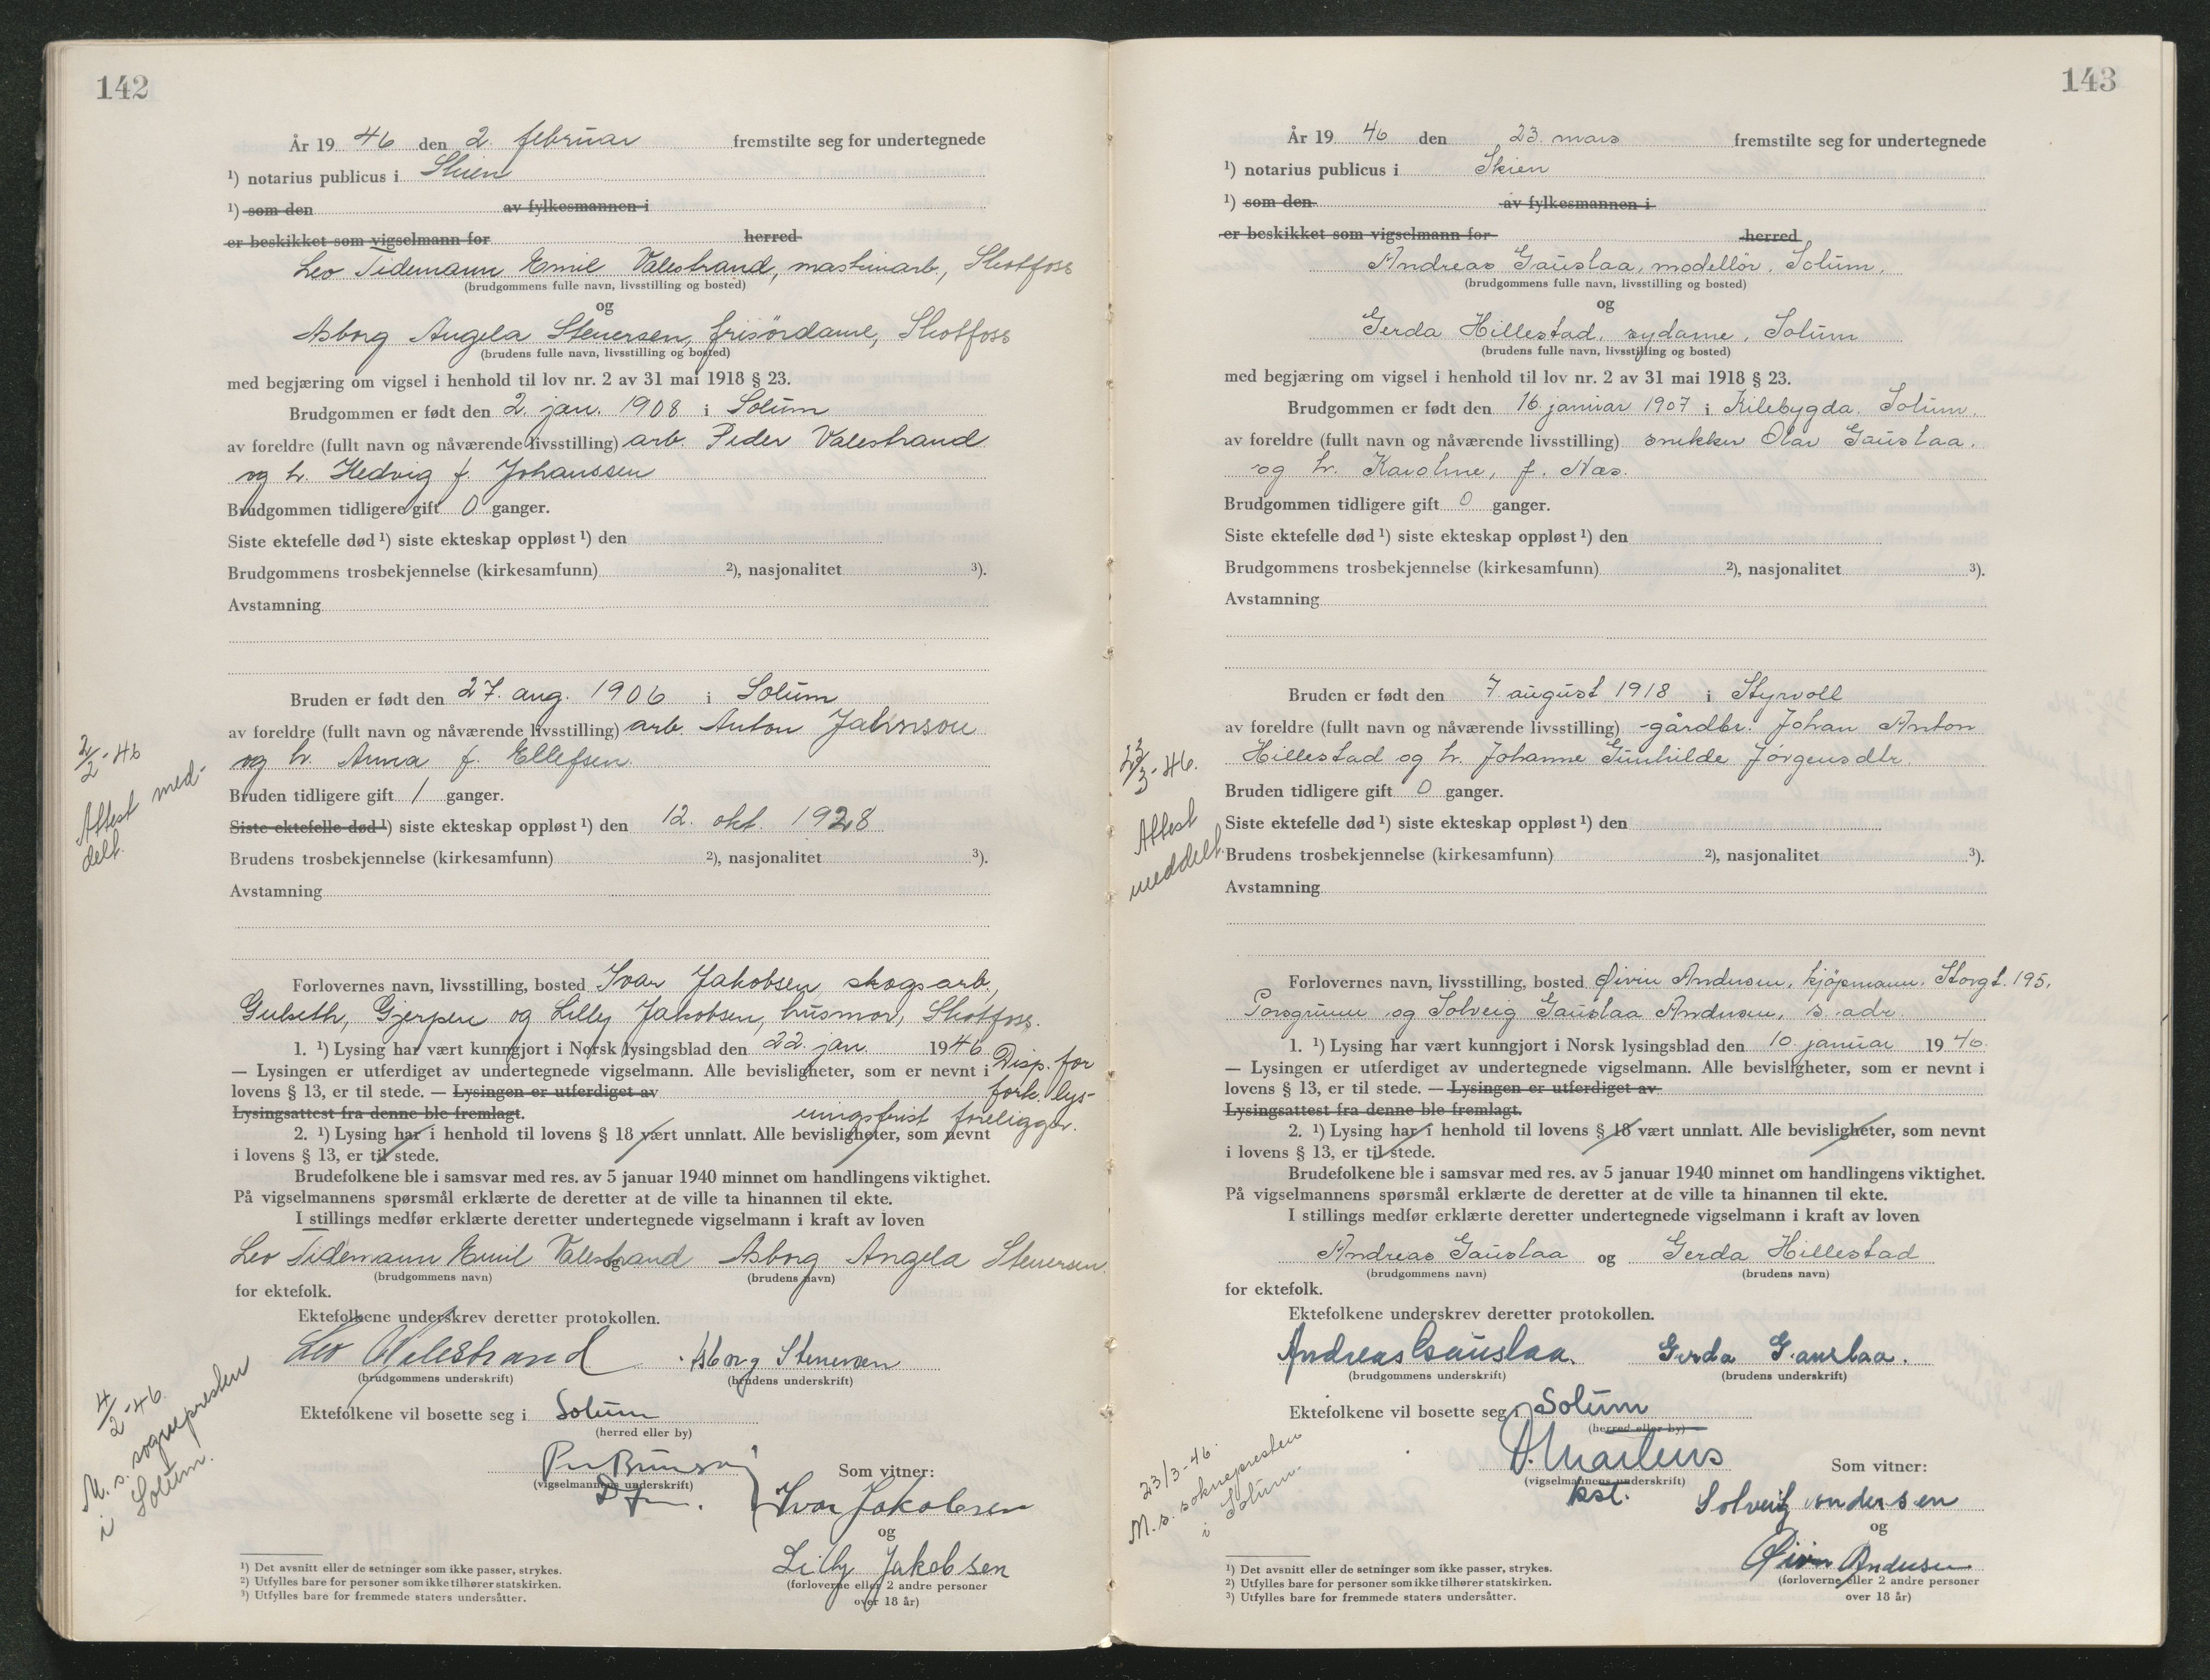 142
År 19 46 den 2. februar fremstilte seg for undertegnede
¹) notarius publicus i Skien
¹) som den av fylkesmannen i
er beskikket som vigselmann for herred
Leo Tidemann Emil Valestrand, maskinarb., Skotfoss
(brudgommens fulle navn, livsstilling og bosted)
og
Asborg Angela Stenersen, frisördame, Skotfoss
(brudens fulle navn, livsstilling og bosted)
med begjæring om vigsel i henhold til lov nr. 2 av 31 mai 1918 § 23.
Brudgommen er født den 2. jan. 1908 i Solum
av foreldre (fullt navn og nåværende livsstilling) arb. Peder Valestrand
og h. Hedvig f. Johanssen
Brudgommen tidligere gift 0 ganger.
Siste ektefelle død ¹) siste ekteskap oppløst ¹) den
Brudgommens trosbekjennelse (kirkesamfunn) ²), nasjonalitet ³).
Avstamning
Bruden er født den 27. aug. 1906 i Solum
av foreldre (fullt navn og nåværende livsstilling) arb. Anton
og h. Anna f. Ellefsen
Bruden tidligere gift 1 ganger.
Siste ektefelle død ¹) siste ekteskap oppløst ¹) den 12. okt. 1928
Brudens trosbekjennelse (kirkesamfunn) ²), nasjonalitet ³).
Avstamning
2/2-46
Attest med-
delt.
Forlovernes navn, livsstilling, bosted Ivar Jakobsen skogsarb.,
Gulseth, Gjerpen og Lilly Jakobsen, husmor, Skotfoss.
1. ¹) Lysing har vært kunngjort i Norsk lysingsblad den 22. jan 1946. Disp. for
— Lysingen er utferdiget av undertegnede vigselmann. Alle bevisligheter, som er nevnt i
lovens § 13, er til stede. — Lysingen er utferdiget av fork. lys-
Lysingsattest fra denne ble fremlagt. ningsfrist foreligger.
2. ¹) Lysing har i henhold til lovens § 18 vært unnlatt. Alle bevisligheter, som nevnt
i lovens § 13, er til stede.
Brudefolkene ble i samsvar med res. av 5 januar 1940 minnet om handlingens viktighet.
På vigselmannens spørsmål erklærte de deretter at de ville ta hinannen til ekte.
I stillings medfør erklærte deretter undertegnede vigselmann i kraft av loven
Leo Tidemann Emil Valestrand og Asborg Angela Stenersen
(brudgommens navn) (brudens navn)
for ektefolk.
Ektefolkene underskrev deretter protokollen.
Leo Valestrand Asborg Stenersen
(brudgommens underskrift) (brudens underskrift)
Ektefolkene vil bosette seg i Solum
(herred eller by)
4/2-46.
M. s. sognepresten
i Solum.
(vigselmannens underskrift) Som vitner:
Ivar Jakobsen
og
Lilly Jakobsen
(forloverne eller 2 andre personer
over 18 år)
¹) Det avsnitt eller de setninger som ikke passer, strykes.
²) Utfylles bare for personer som ikke tilhører statskirken.
³) Utfylles bare for fremmede staters undersåtter.
143
År 19 46 den 23. mars fremstilte seg for undertegnede
¹) notarius publicus i Skien
¹) som den av fylkesmannen i
er beskikket som vigselmann for herred
Andreas Gauslaa, modellör, Solum,
(brudgommens fulle navn, livsstilling og bosted)
og
Gerda Hillestad, sydame, Solum
(brudens fulle navn, livsstilling og bosted)
med begjæring om vigsel i henhold til lov nr. 2 av 31 mai 1918 § 23.
Brudgommen er født den 16. januar 1907 i Kilebygda, Solum,
av foreldre (fullt navn og nåværende livsstilling) snekker Olav Gauslaa,
og h. Karoline, f. Næs.
Brudgommen tidligere gift 0 ganger.
Siste ektefelle død ¹) siste ekteskap oppløst ¹) den
Brudgommens trosbekjennelse (kirkesamfunn) ²), nasjonalitet ³).
Avstamning
Bruden er født den 7. august 1918 i Styrvoll
av foreldre (fullt navn og nåværende livsstilling) gårdbr. Johan Anton
Hillestad og h. Johanne Gunhilde Jörgensdtr.
Bruden tidligere gift 0 ganger.
Siste ektefelle død ¹) siste ekteskap oppløst ¹) den
Brudens trosbekjennelse (kirkesamfunn) ²), nasjonalitet ³).
Avstamning
23/3-46.
Attest
meddelt.
Forlovernes navn, livsstilling, bosted Øivin Andersen, kjøpmann, Storgt. 195,
Porsgrunn og Solveig Gauslaa Andersen, s. adr.
1. ¹) Lysing har vært kunngjort i Norsk lysingsblad den 10. januar 1946.
— Lysingen er utferdiget av undertegnede vigselmann. Alle bevisligheter, som er nevnt i
lovens § 13, er til stede. — Lysingen er utferdiget av
Lysingsattest fra denne ble fremlagt.
2. ¹) Lysing har i henhold til lovens § 18 vært unnlatt. Alle bevisligheter, som nevnt
i lovens § 13, er til stede.
Brudefolkene ble i samsvar med res. av 5 januar 1940 minnet om handlingens viktighet.
På vigselmannens spørsmål erklærte de deretter at de ville ta hinannen til ekte.
I stillings medfør erklærte deretter undertegnede vigselmann i kraft av loven
Andreas Gauslaa og Gerda Hillestad
(brudgommens navn) (brudens navn)
for ektefolk.
Ektefolkene underskrev deretter protokollen.
Andreas Gauslaa. Gerda Gauslaa.
(brudgommens underskrift) (brudens underskrift)
Ektefolkene vil bosette seg i Solum
(herred eller by)
23/3-46.
M. s. soknepresten
i Solum.
D. Martens
(vigselmannens underskrift) Som vitner:
kst. Solveig Andersen
og
Øivin Andersen
(forloverne eller 2 andre personer
over 18 år)
¹) Det avsnitt eller de setninger som ikke passer, strykes.
²) Utfylles bare for personer som ikke tilhører statskirken.
³) Utfylles bare for fremmede staters undersåtter.